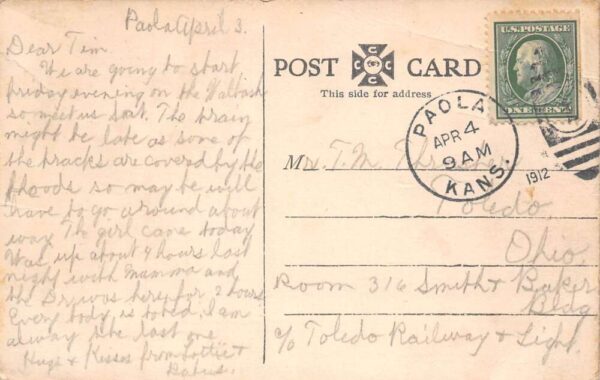 Paola April 3.
Dear Tim
We are going to start
friday evening on the Wabash
so meet us Sat. The train
might be late as some of
the tracks are covered by the
floods so may be will
have to go around about
way. The girl came today
Was up about 4 hours last
night with Mamma and
the Dr. was here for 2 hours
Every body is tired. I am
alway the last one
Hugs & Kisses from Lottie &
POST CARD
This side for address
U.S. POSTAGE
ONE CENT
PAOLA
APR 4
9 AM
KANS.
1912
Mr. T. M.
Toledo
Ohio.
Room 316 Smith & Baker
Bldg
c/o Toledo Railway & Light.